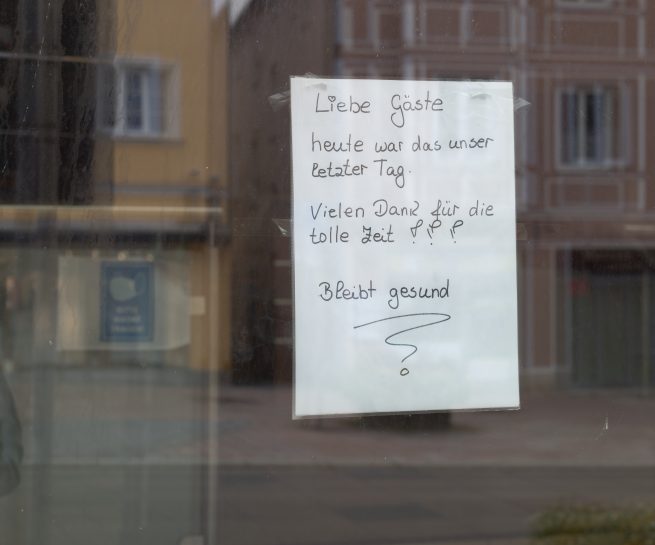 Liebe Gäste
heute war das unser
letzter Tag.
Vielen Dank für die
tolle Zeit !!!
Bleibt gesund